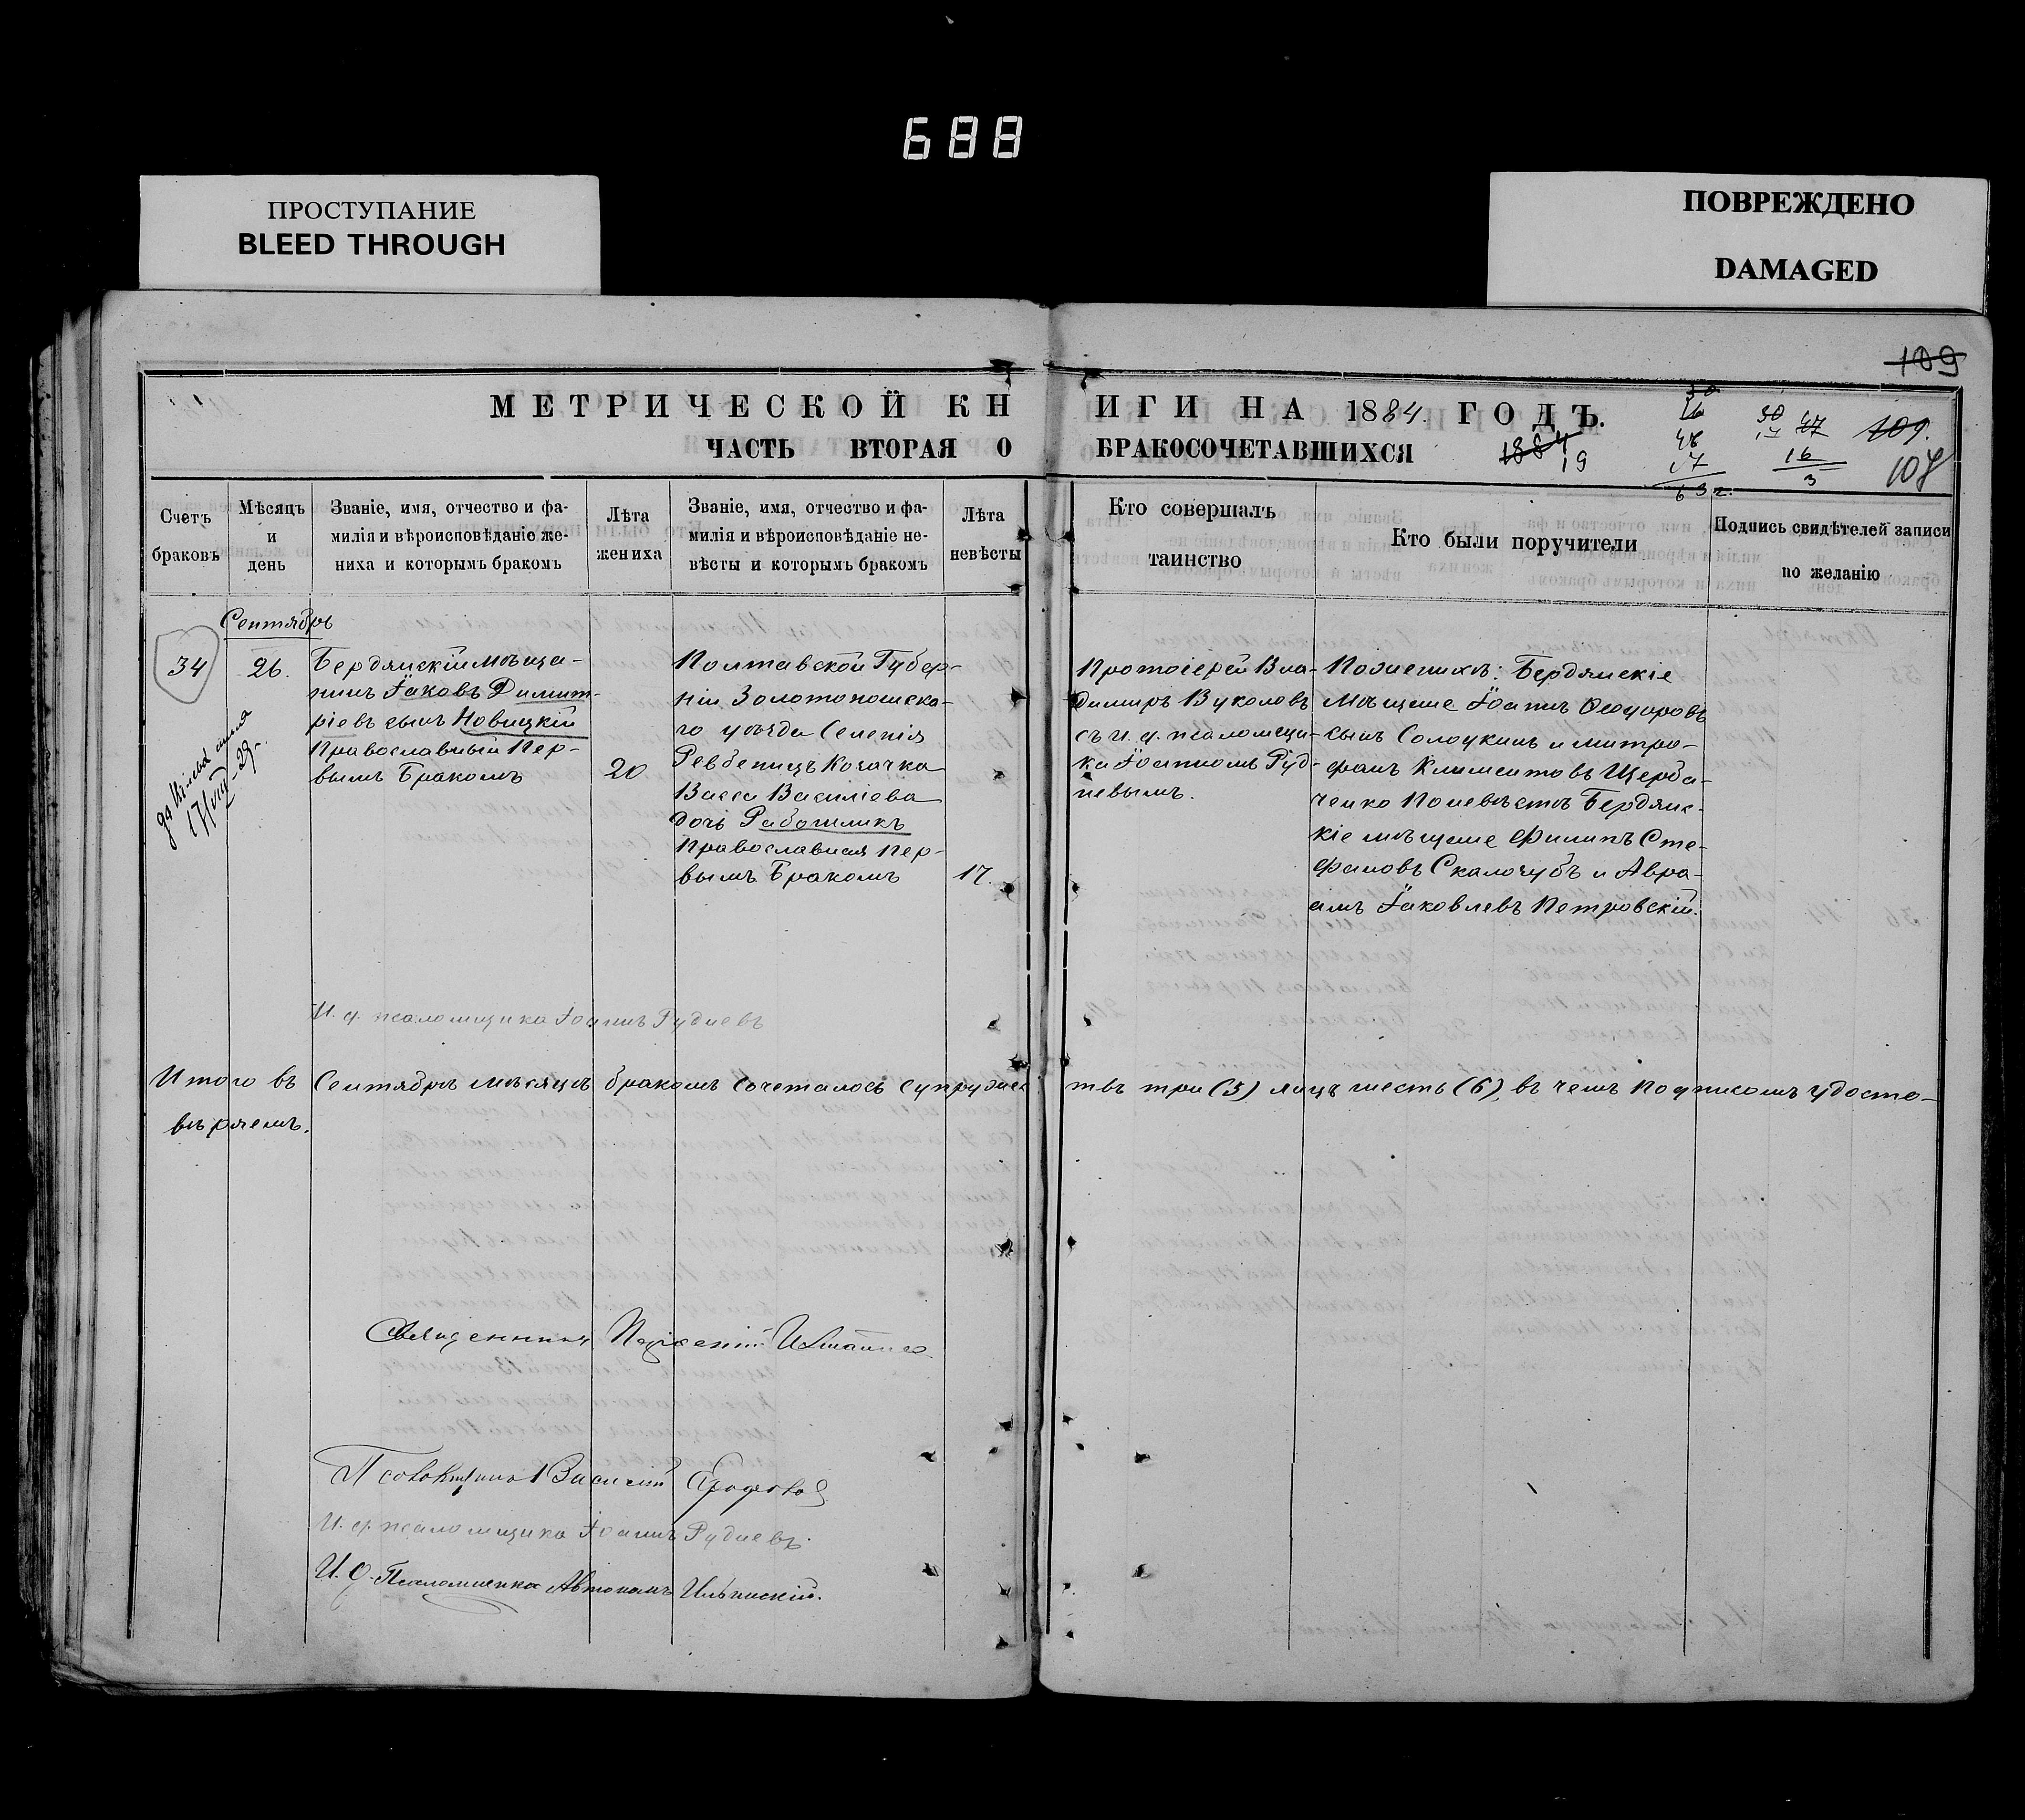 688
ПРОСТУПАНИЕ
BLEED THROUGH
ПОВРЕЖДЕНО
DAMAGED
109
МЕТРИЧЕСКОЙ КНИГИ НА 1884. ГОДЪ.
ЧАСТЬ ВТОРАЯ О БРАКОСОЧЕТАВШИХСЯ
1884
19
48
17
63
30 47
17
16
3
109.
108
Счетъ
браковъ
Мѣсяцъ
и
день
Званіе, имя, отчество и фа-
милія и вѣроисповѣданіе же-
ниха и которымъ бракомъ
Лѣта
жениха
Званіе, имя, отчество и фа-
милія и вѣроисповѣданіе не-
вѣсты и которымъ бракомъ
Лѣта
невѣсты
Кто совершалъ
таинство
Кто были поручители
Подпись свидѣтелей записи
по желанію
Сентябрь
34
26.
Бердянскій мѣща-
нинъ Іаковъ Димит-
ріевъ сынъ Новицкій
Православный пер-
вымъ Бракомъ
20
Полтавской Губер-
ніи Золотоношска-
го уѣзда Селенія
Ревбенцъ Козачка
Васса Василіева
дочь Работникъ
Православная пер-
вымъ Бракомъ
17.
Протоіерей Вла-
димиръ Вуколовъ
съ и. д. псаломщи-
ка Іоанномъ Руд-
невымъ.
По женихѣ: Бердянскіе
Мѣщане Іоаннъ Ѳеодоровъ
сынъ Солодкинъ и Митро-
фанъ Климентовъ Щерба-
ченко По невѣстѣ Бердянс-
кіе мѣщане Филипъ Сте-
фановъ Скалозубъ и Авра-
амъ Іаковлевъ Петровскій.
И. д. псаломщика Іоаннъ Рудневъ
Итого въ Сентябрѣ мѣсяцѣ бракомъ сочеталось супружес-
твъ три (3) лицъ шесть (6), въ чемъ подписомъ удосто-
вѣряемъ.
Священникъ
Василій
И. д. псаломщика Іоаннъ Рудневъ.
И. д. Псаломщика Автономъ Ильинскій.